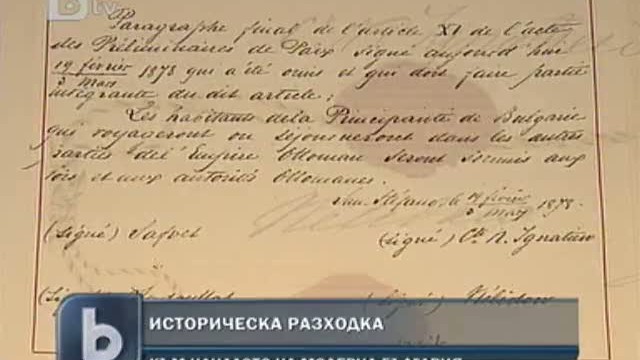 bTV
Paragraphe final de l'article XI de l'acte
des Préliminaires de Paix signé aujourd'hui
19 février / 3 Mars 1878 qui a été omis et qui doit faire partie
intégrante du dit article;
Les habitants de la Principauté de Bulgarie
qui voyageront ou séjourneront dans les autres
parties de l'Empire Ottoman seront soumis aux
lois et aux autorités Ottomanes.
San Stéfano le 19 février / 3 Mars 1878.
(signé) Safvet
(signé) Cte N. Ignatiew
(signé) Nélidow
b
ИСТОРИЧЕСКА РАЗХОДКА